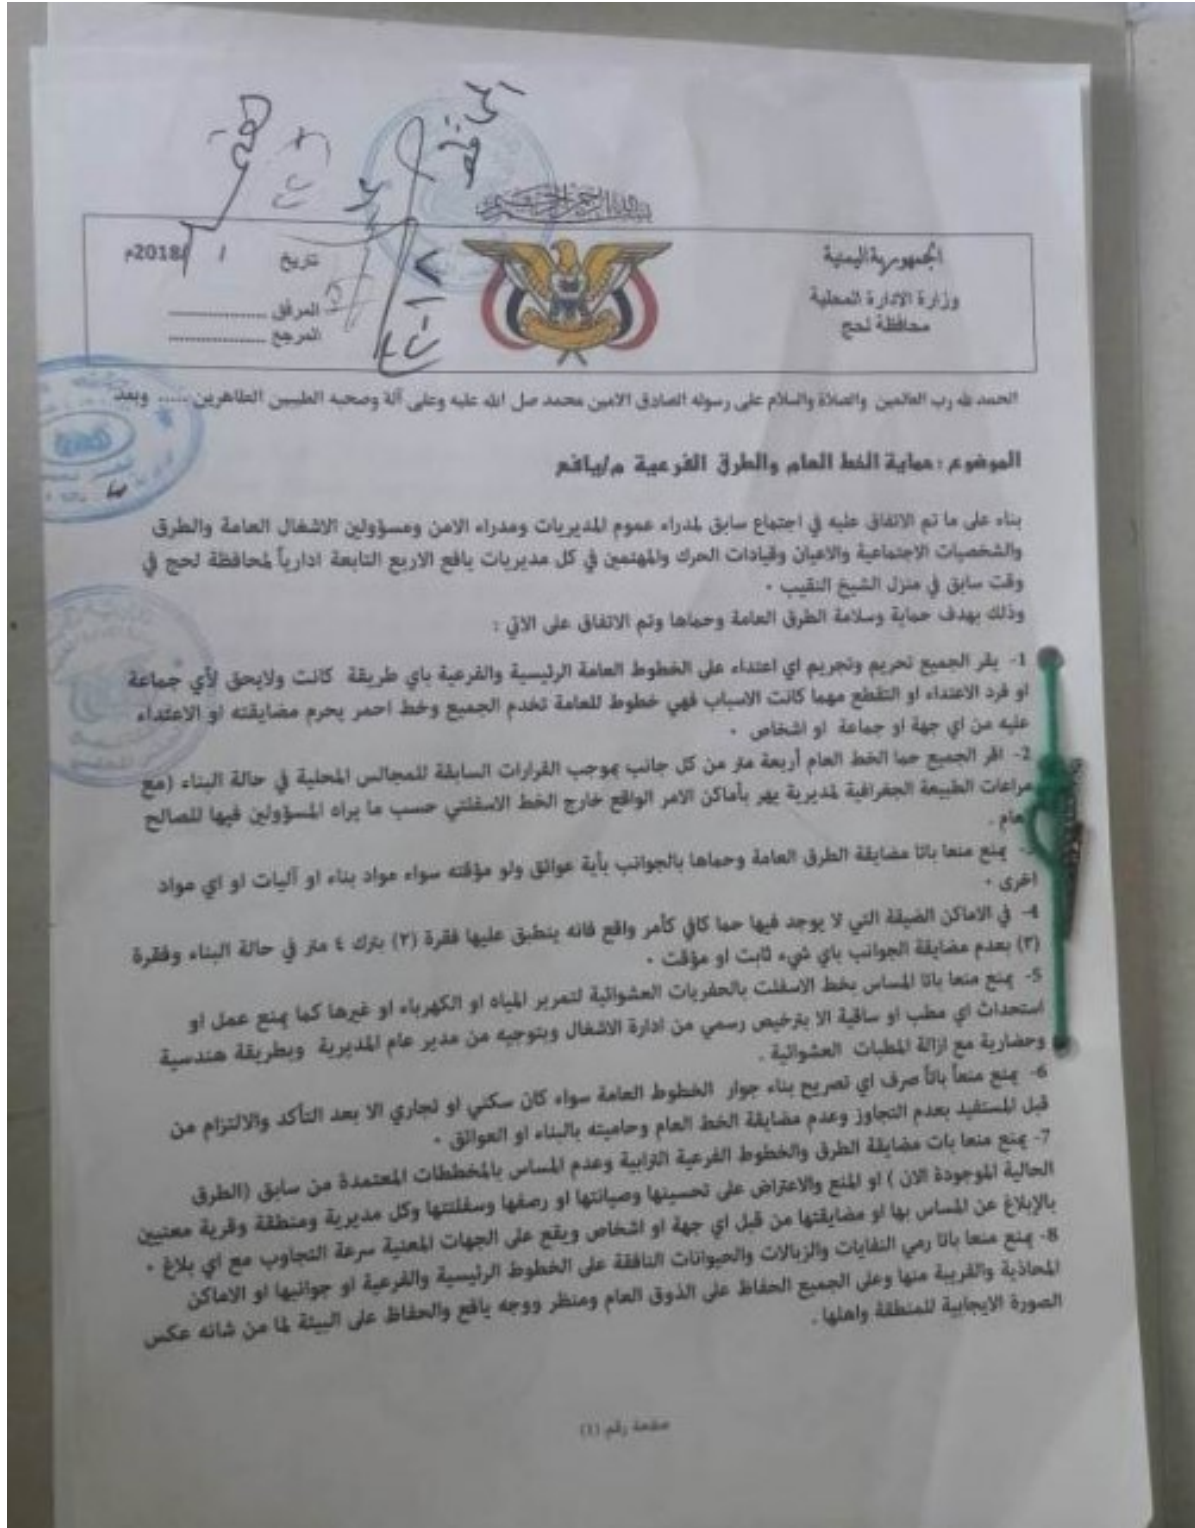 بسم الله الرحمن الرحيم
الجمهورية اليمنية
وزارة الادارة المحلية
محافظة لحج
تاريخ / /2018م
المرفق ................
المرجع ................
الحمد لله رب العالمين والصلاة والسلام على رسوله الصادق الامين محمد صل الله عليه وعلى آلة وصحبه الطيبين الطاهرين ..... وبعد
الموضوع : حماية الخط العام والطرق الفرعية م/يافع
بناء على ما تم الاتفاق عليه في اجتماع سابق لمدراء عموم المديريات ومدراء الامن ومسؤولين الاشغال العامة والطرق
والشخصيات الاجتماعية والاعيان وقيادات الحرك والمهتمين في كل مديريات يافع الاربع التابعة ادارياً لمحافظة لحج في
وقت سابق في منزل الشيخ النقيب .
وذلك بهدف حماية وسلامة الطرق العامة وحماها وتم الاتفاق على الاتي :
1- يقر الجميع تحريم وتجريم اي اعتداء على الخطوط العامة الرئيسية والفرعية باي طريقة كانت ولايحق لأي جماعة
او فرد الاعتداء او التقطع مهما كانت الاسباب فهي خطوط للعامة تخدم الجميع وخط احمر يحرم مضايقته او الاعتداء
عليه من اي جهة او جماعة او اشخاص .
2- اقر الجميع حما الخط العام أربعة متر من كل جانب بموجب القرارات السابقة للمجالس المحلية في حالة البناء (مع
مراعات الطبيعة الجغرافية لمديرية يهر بأماكن الامر الواقع خارج الخط الاسفلتي حسب ما يراه المسؤولين فيها للصالح
عام .
- يمنع منعا باتا مضايقة الطرق العامة وحماها بالجوانب بأية عوائق ولو مؤقته سواء مواد بناء او آليات او اي مواد
اخرى .
4- في الاماكن الضيقة التي لا يوجد فيها حما كافي كأمر واقع فانه ينطبق عليها فقرة (٢) بترك ٤ متر في حالة البناء وفقرة
(٣) بعدم مضايقة الجوانب باي شيء ثابت او مؤقت .
5- يمنع منعا باتا المساس بخط الاسفلت بالحفريات العشوائية لتمرير المياه او الكهرباء او غيرها كما يمنع عمل او
استحداث اي مطب او ساقية الا بترخيص رسمي من ادارة الاشغال وبتوجيه من مدير عام المديرية وبطريقة هندسية
وحضارية مع ازالة المطبات العشوائية .
6- يمنع منعاً باتاً صرف اي تصريح بناء جوار الخطوط العامة سواء كان سكني او تجاري الا بعد التأكد والالتزام من
قبل المستفيد بعدم التجاوز وعدم مضايقة الخط العام وحاميته بالبناء او العوائق .
7- يمنع منعا بات مضايقة الطرق والخطوط الفرعية الترابية وعدم المساس بالمخططات المعتمدة من سابق (الطرق
الحالية الموجودة الان ) او المنع والاعتراض على تحسينها وصيانتها او رصفها وسفلتتها وكل مديرية ومنطقة وقرية معنيين
بالإبلاغ عن المساس بها او مضايقتها من قبل اي جهة او اشخاص ويقع على الجهات المعنية سرعة التجاوب مع اي بلاغ .
8- يمنع منعا باتا رمي النفايات والزبالات والحيوانات النافقة على الخطوط الرئيسية والفرعية او جوانبها او الاماكن
المحاذية والقريبة منها وعلى الجميع الحفاظ على الذوق العام ومنظر ووجه يافع والحفاظ على البيئة لما من شانه عكس
الصورة الايجابية للمنطقة واهلها .
صفحة رقم (1)